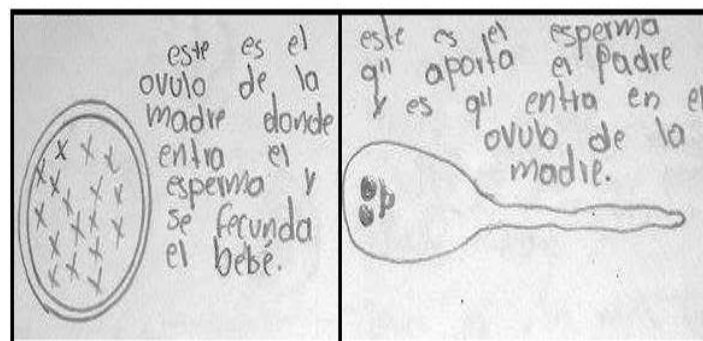 este es el
ovulo de la
madre donde
entra el
esperma y
se fecunda
el bebé.
este es el esperma
q" aporta el Padre
y es q" entra en el
ovulo de la
madre.